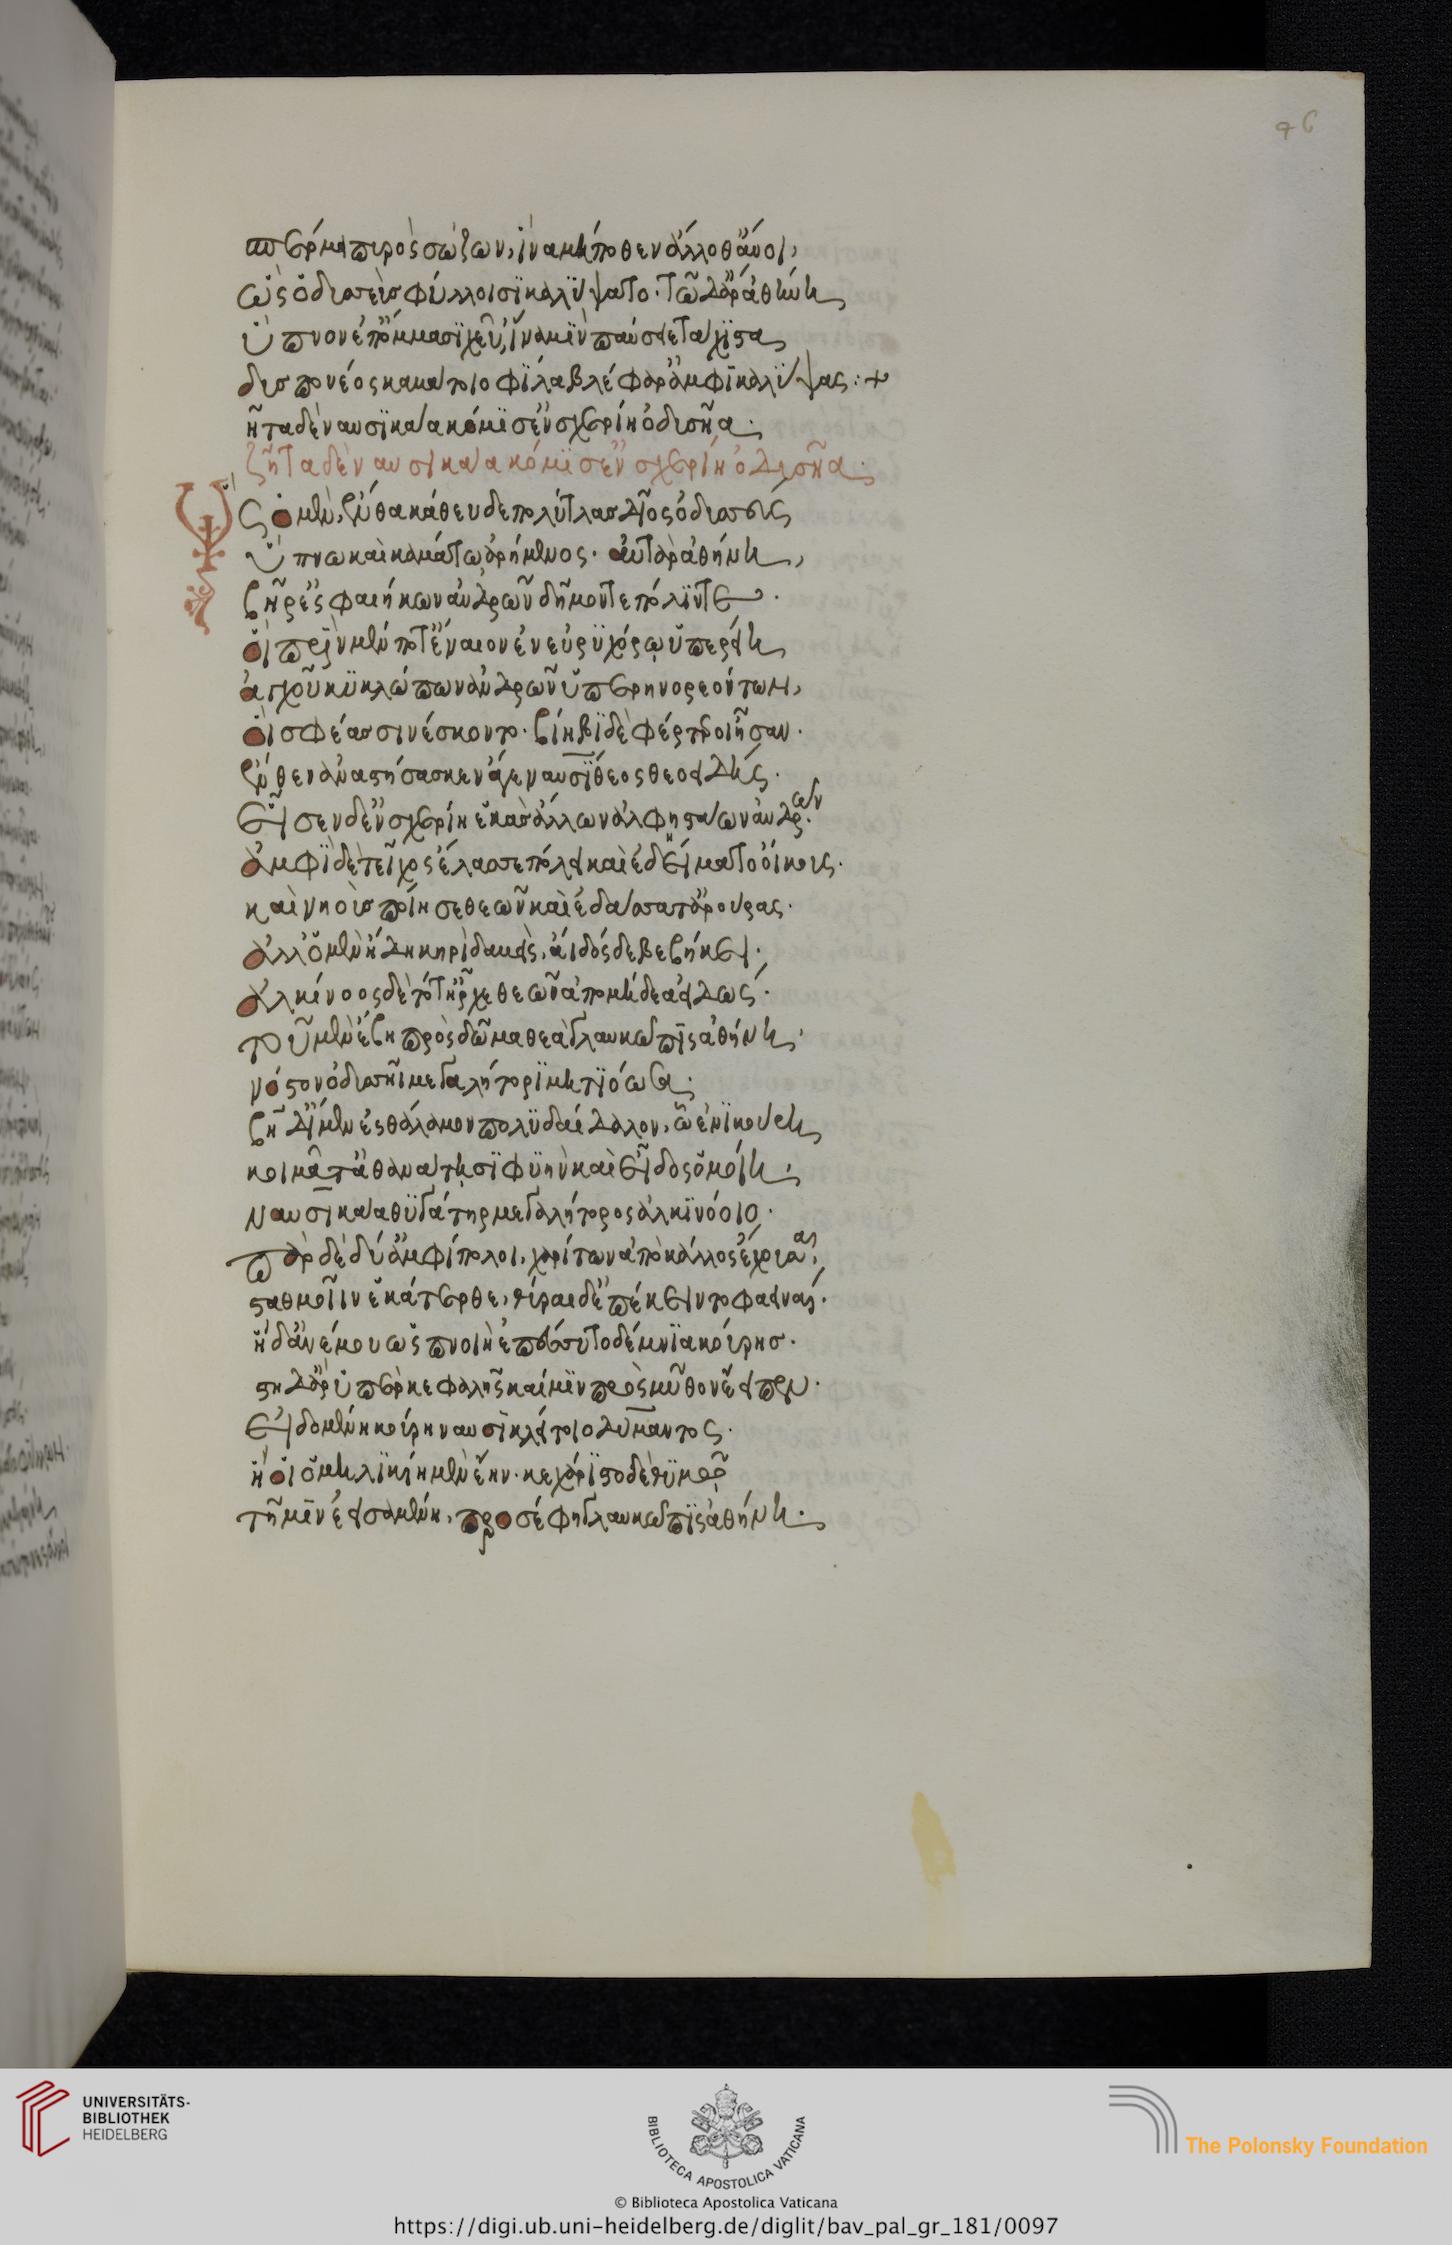 46
σπέρμα πυρὸς σώζων, ἵνα μήποθεν ἄλλοθ αὔοι,
ὣς ὀδυσεὺς φύλλοισι καλύψατο· τῶ δ ἄρ ἀθήνη
ὕπνον ἐπ ὄμμασι χεῦ, ἵνα μϊν παύσειε τάχιστα
δυσπονέος καμάτοιο φίλα βλέφαρ ἀμφικαλύψας :+
ἦτα δὲ ναυσικάα κόμισ ἐν σχερίη ὀδυσῆα.
ζῆτα δὲ ναυσικάα κόμισ ἐν σχερίη ὀδυσῆα.
Ὣς ὁ μὲν ἔνθα κάθευδε πολύτλας δῖος ὀδυσσεὺς
ὕπνω καὶ καμάτω ἀρημένος· αὐτὰρ ἀθήνη,
βῆ ρ ἐς φαιήκων ἀνδρῶν δῆμόν τε πόλιν τε·
οἳ πρὶν μέν ποτ ἔναιον ἐν εὐρυχόρῳ ὑπερείη
ἀγχοῦ κυκλώπων ἀνδρῶν ὑπερηνορεόντων,
οἵ σφέας σινέσκοντο· βίηβι δὲ φέρτεροι ἦσαν.
ἔνθεν ἀναστήσας κεν ἄγε ναυσίθεος θεοειδής.
εἷσεν δ ἐν σχερίη ἑκὰς ἄλλων ἀλφηστάων ἀνδρῶν.
ἀμφὶ δὲ τεῖχος ἔλασσε πόλει καὶ ἐδείματο οἴκους.
καὶ νηοὺς ποίησε θεῶν καὶ ἐδάσσατ ἀρούρας.
ἀλλ ὁ μὲν ἤδη κηρὶ δαμεὶς, ἄϊδόσδε βεβήκει.
ἀλκίνοος δὲ τότ ἦρχε θεῶν ἄπο μήδεα εἰδώς.
τοῦ μὲν ἔβη πρὸς δῶμα θεὰ γλαυκῶπις ἀθήνη,
νόστον ὀδυσσῆϊ μεγαλήτορι μητιόωσα.
βῆ δ ἴμεν ἐς θάλαμον πολυδαίδαλον, ᾧ ἔνι κούρη
κοιμᾶτ ἀθανάτῃσι φυὴν καὶ εἶδος ὁμοίη,
ναυσικάα θυγάτηρ μεγαλήτορος ἀλκινόοιο.
πὰρ δὲ δύ ἀμφίπολοι, χαρίτων ἄπο κάλλος ἔχουσαι,
σταθμοῖιν ἑκάτερθε, θύραι δ ἐπέκειντο φαειναί.
ἡ δ ἀνέμου ὡς πνοιὴ ἐπέσσυτο δέμνια κούρης.
στῆ δ ἄρ ὑπὲρ κεφαλῆς καί μιν πρὸς μῦθον ἔειπεν.
εἰδομένη κούρη ναυσικλειτοῖο δύμαντος.
ἥ οἱ ὁμηλικίη μὲν ἔην· κεχάριστο δὲ θυμῷ
τῆ μιν ἐεισαμένη, προσέφη γλαυκῶπις ἀθήνη.
UNIVERSITÄTS-
BIBLIOTHEK
HEIDELBERG
BIBLIOTECA APOSTOLICA VATICANA
The Polonsky Foundation
© Biblioteca Apostolica Vaticana
https://digi.ub.uni-heidelberg.de/diglit/bav_pal_gr_181/0097